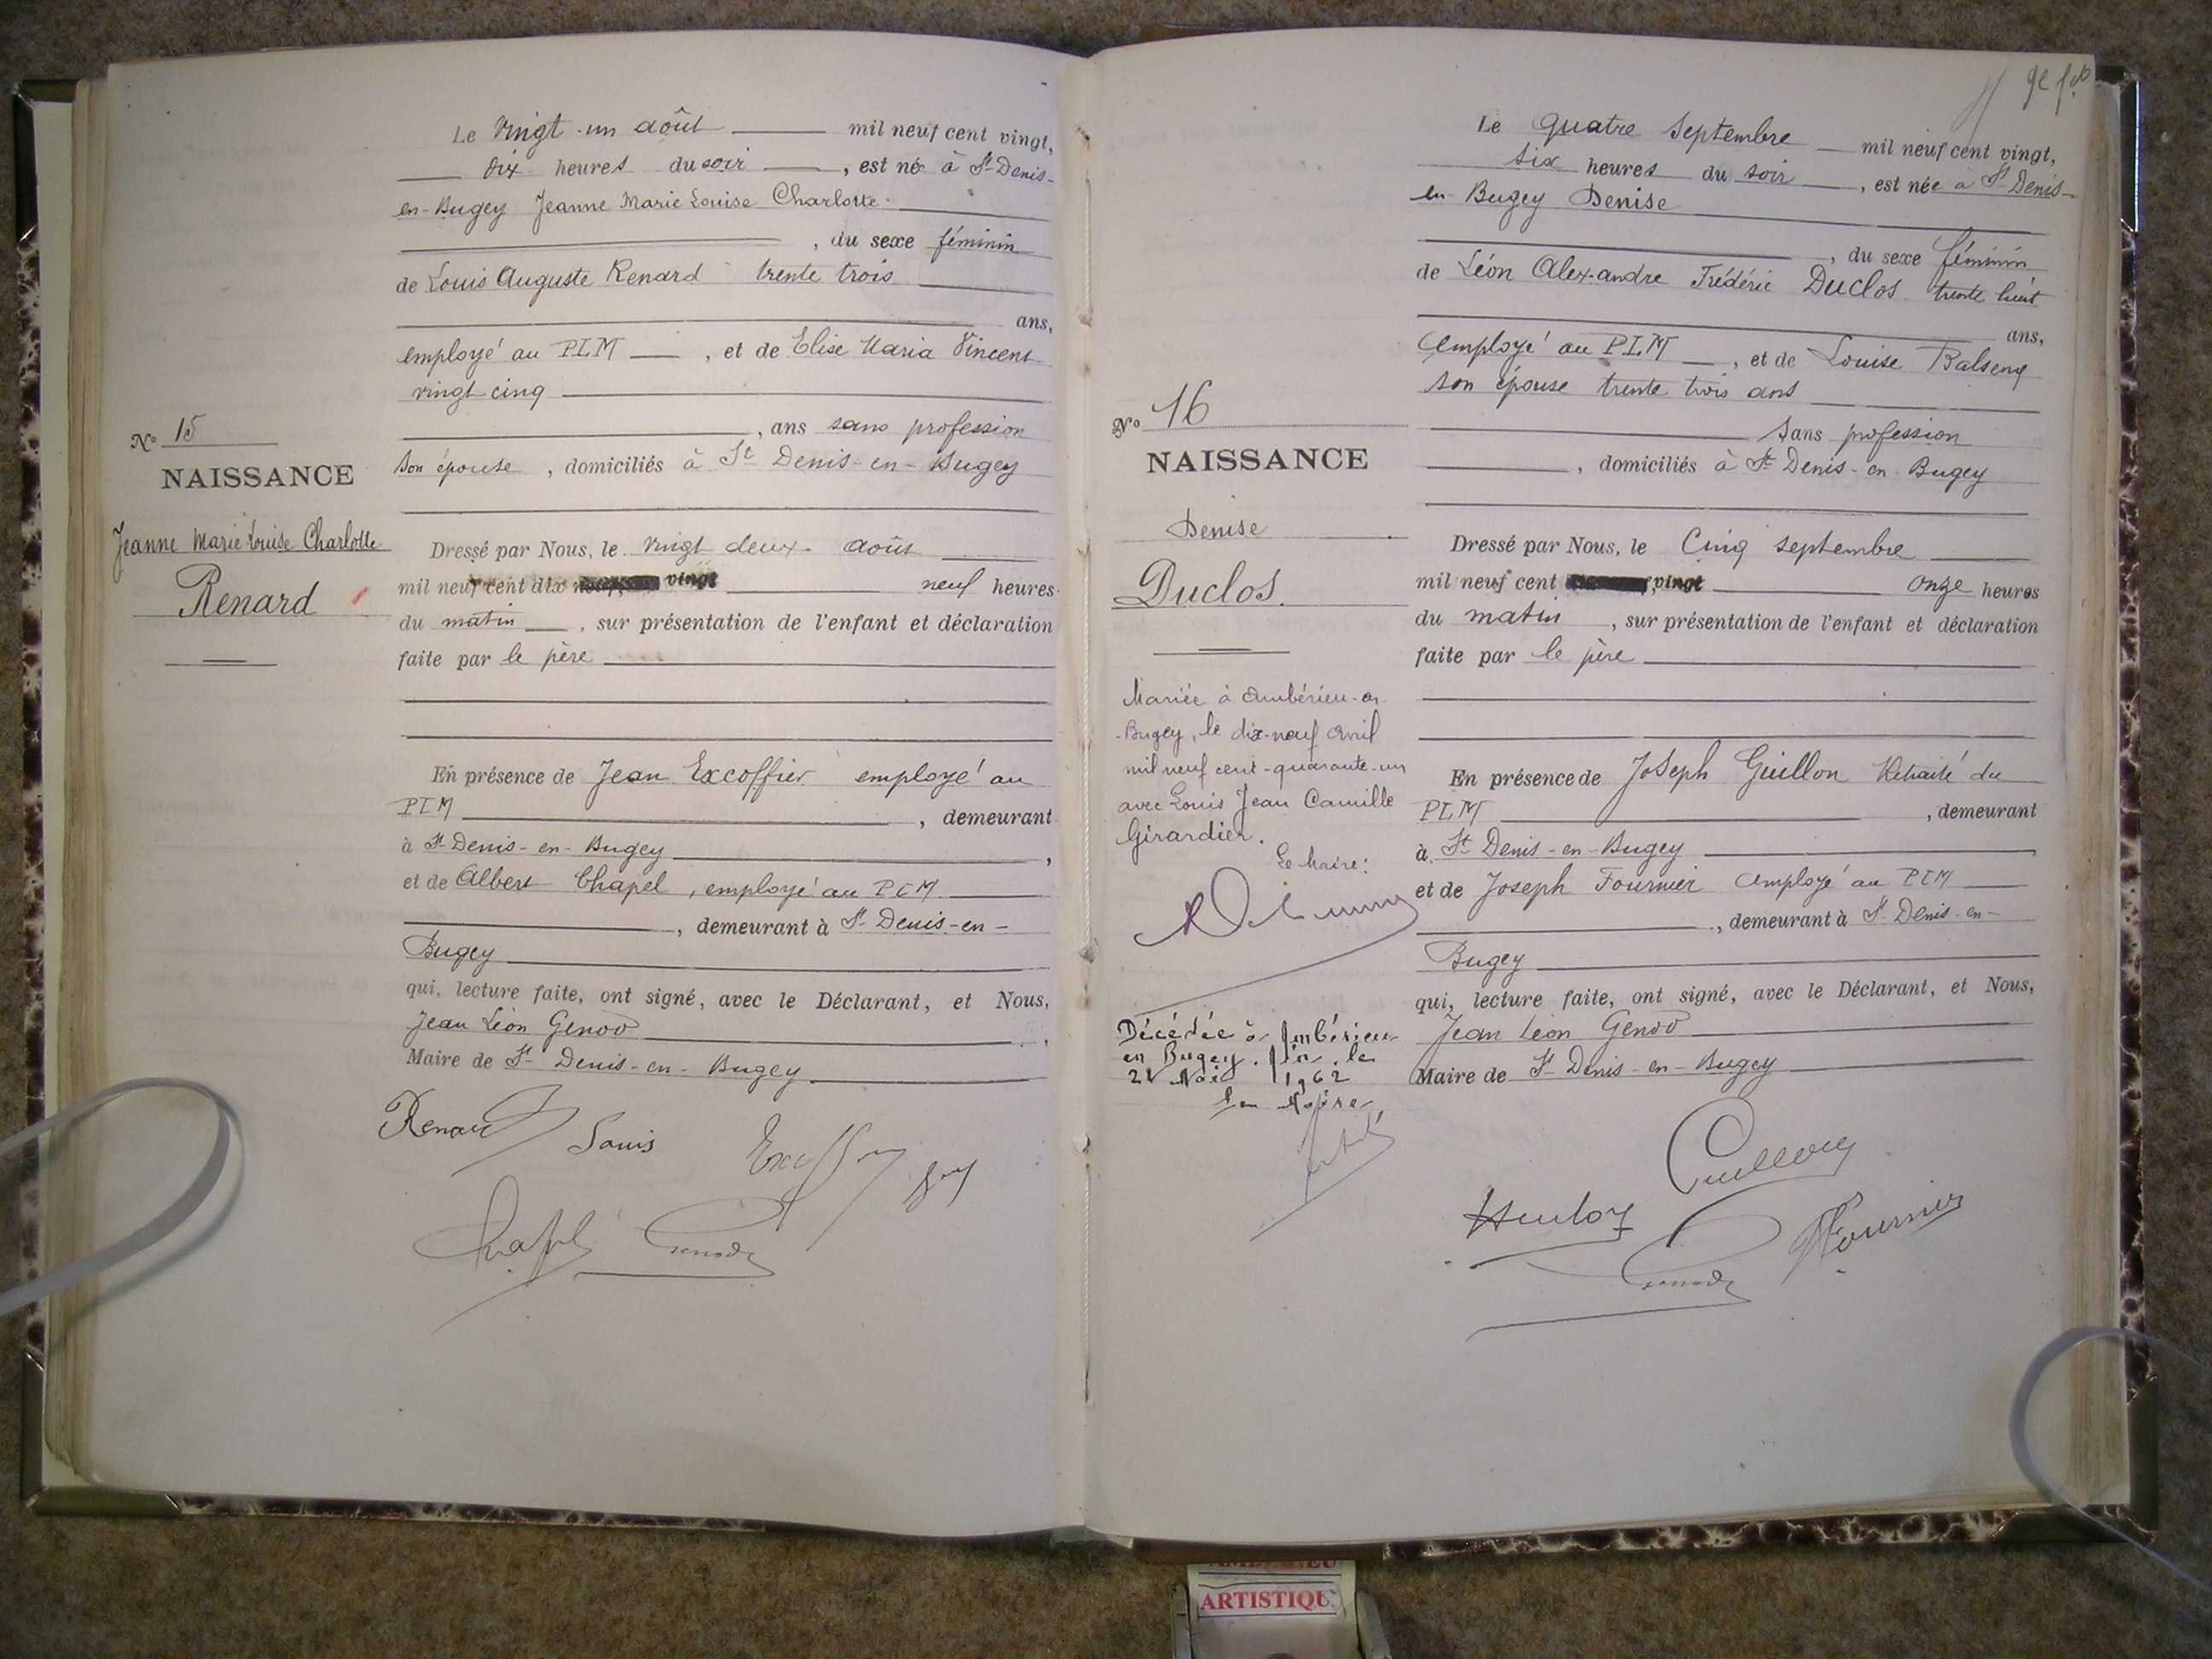 Le vingt-un août mil neuf cent vingt,
dix heures du soir, est né à St-Denis-
en-Bugey Jeanne Marie Louise Charlotte
, du sexe féminin
de Louis Auguste Renard trente trois
ans,
employé au PLM, et de Elise Maria Vincent
vingt cinq
, ans sans profession
son épouse, domiciliés à St Denis-en-Bugey
No 15
NAISSANCE
Jeanne Marie Louise Charlotte
Renard
Dressé par Nous, le vingt deux août
mil neuf cent dix vingt neuf heures
du matin, sur présentation de l'enfant et déclaration
faite par le père
En présence de Jean Excoffier employé au
PLM, demeurant
à St-Denis-en-Bugey,
et de Albert Chapel, employé au PLM
, demeurant à St-Denis-en-
Bugey
qui, lecture faite, ont signé, avec le Déclarant, et Nous,
Jean Léon Genod
Maire de St-Denis-en-Bugey
Renard Louis
Chapel Genod
Le quatre Septembre mil neuf cent vingt,
six heures du soir, est née à St Denis-
en Bugey Denise
, du sexe féminin
de Léon Alexandre Frédéric Duclos trente huit
ans,
employé au PLM, et de Louise
son épouse trente trois ans
Sans profession
, domiciliés à St-Denis-en-Bugey
No 16
NAISSANCE
Denise
Duclos
Dressé par Nous, le Cinq septembre
mil neuf cent vingt onze heures
du matin, sur présentation de l'enfant et déclaration
faite par le père
Mariée à Ambérieu-en-
Bugey, le dix-neuf avril
mil neuf cent-quarante-un
avec Louis Jean Camille
Girardier.
Le Maire:
En présence de Joseph Guillon Retraité du
PLM, demeurant
à St Denis-en-Bugey
et de Joseph Fournier employé au PLM
, demeurant à St-Denis-en-
Bugey
qui, lecture faite, ont signé, avec le Déclarant, et Nous,
Jean Léon Genod
Maire de St-Denis-en-Bugey
Décédée à Ambérieu
en Bugey. Ain. le
21 Mai 1962
Le Maire
Guillon
Fournier
Genod
ARTISTIQU